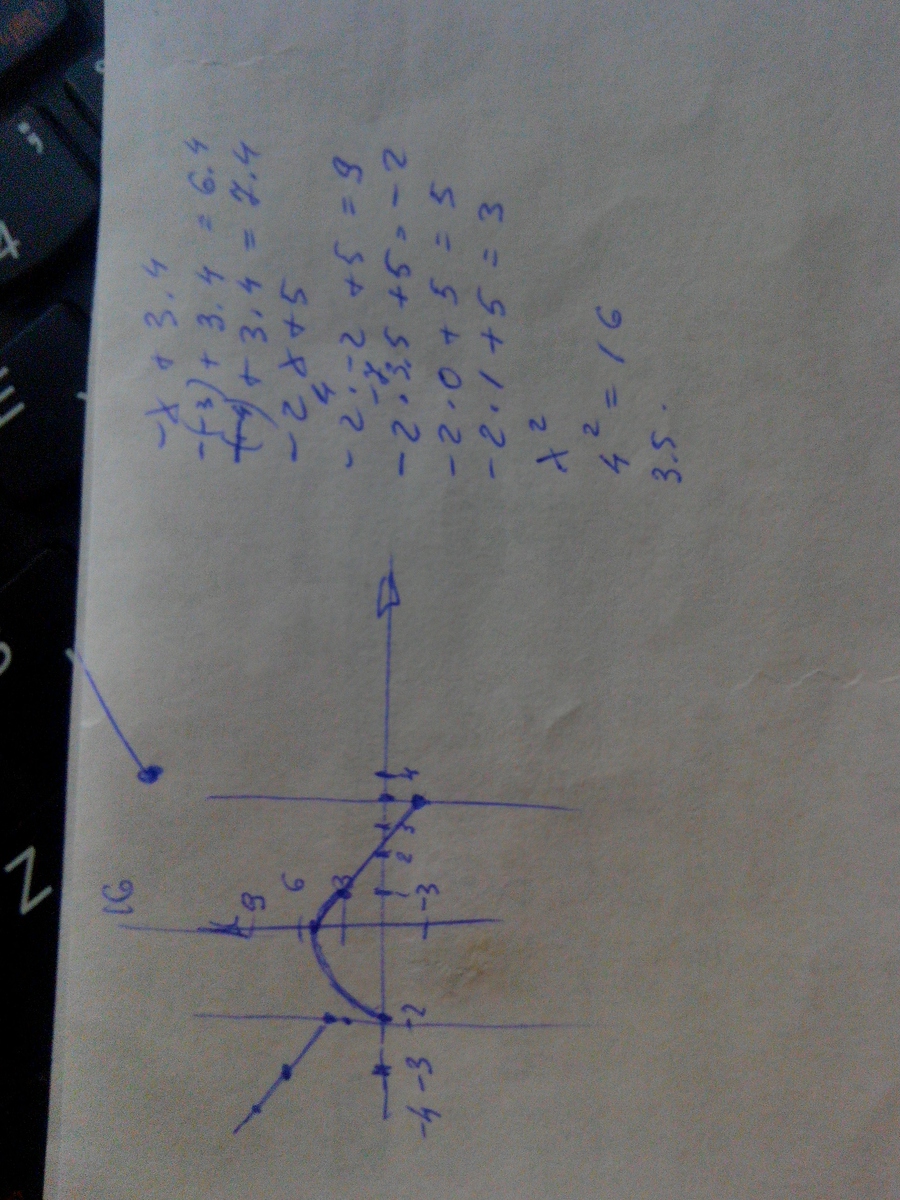 -x + 3.4
-(-3) + 3.4 = 6.4
-(-4) + 3.4 = 7.4
-2x+5
4
-2·-2 +5 = 9
-7
-2·3.5 +5 = -2
-2·0 + 5 = 5
-2·1 + 5 = 3
x²
4² = 16
3.5.
16
9
6
3
-3
-4 -3 -2 1 2 3 4
N